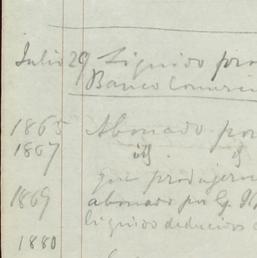 Julio 29 Liquido pro
Banco Comerci
1865 Abonado por
1867 id. id
que produjeron
1869 abonado por
liquido deducidos
1880